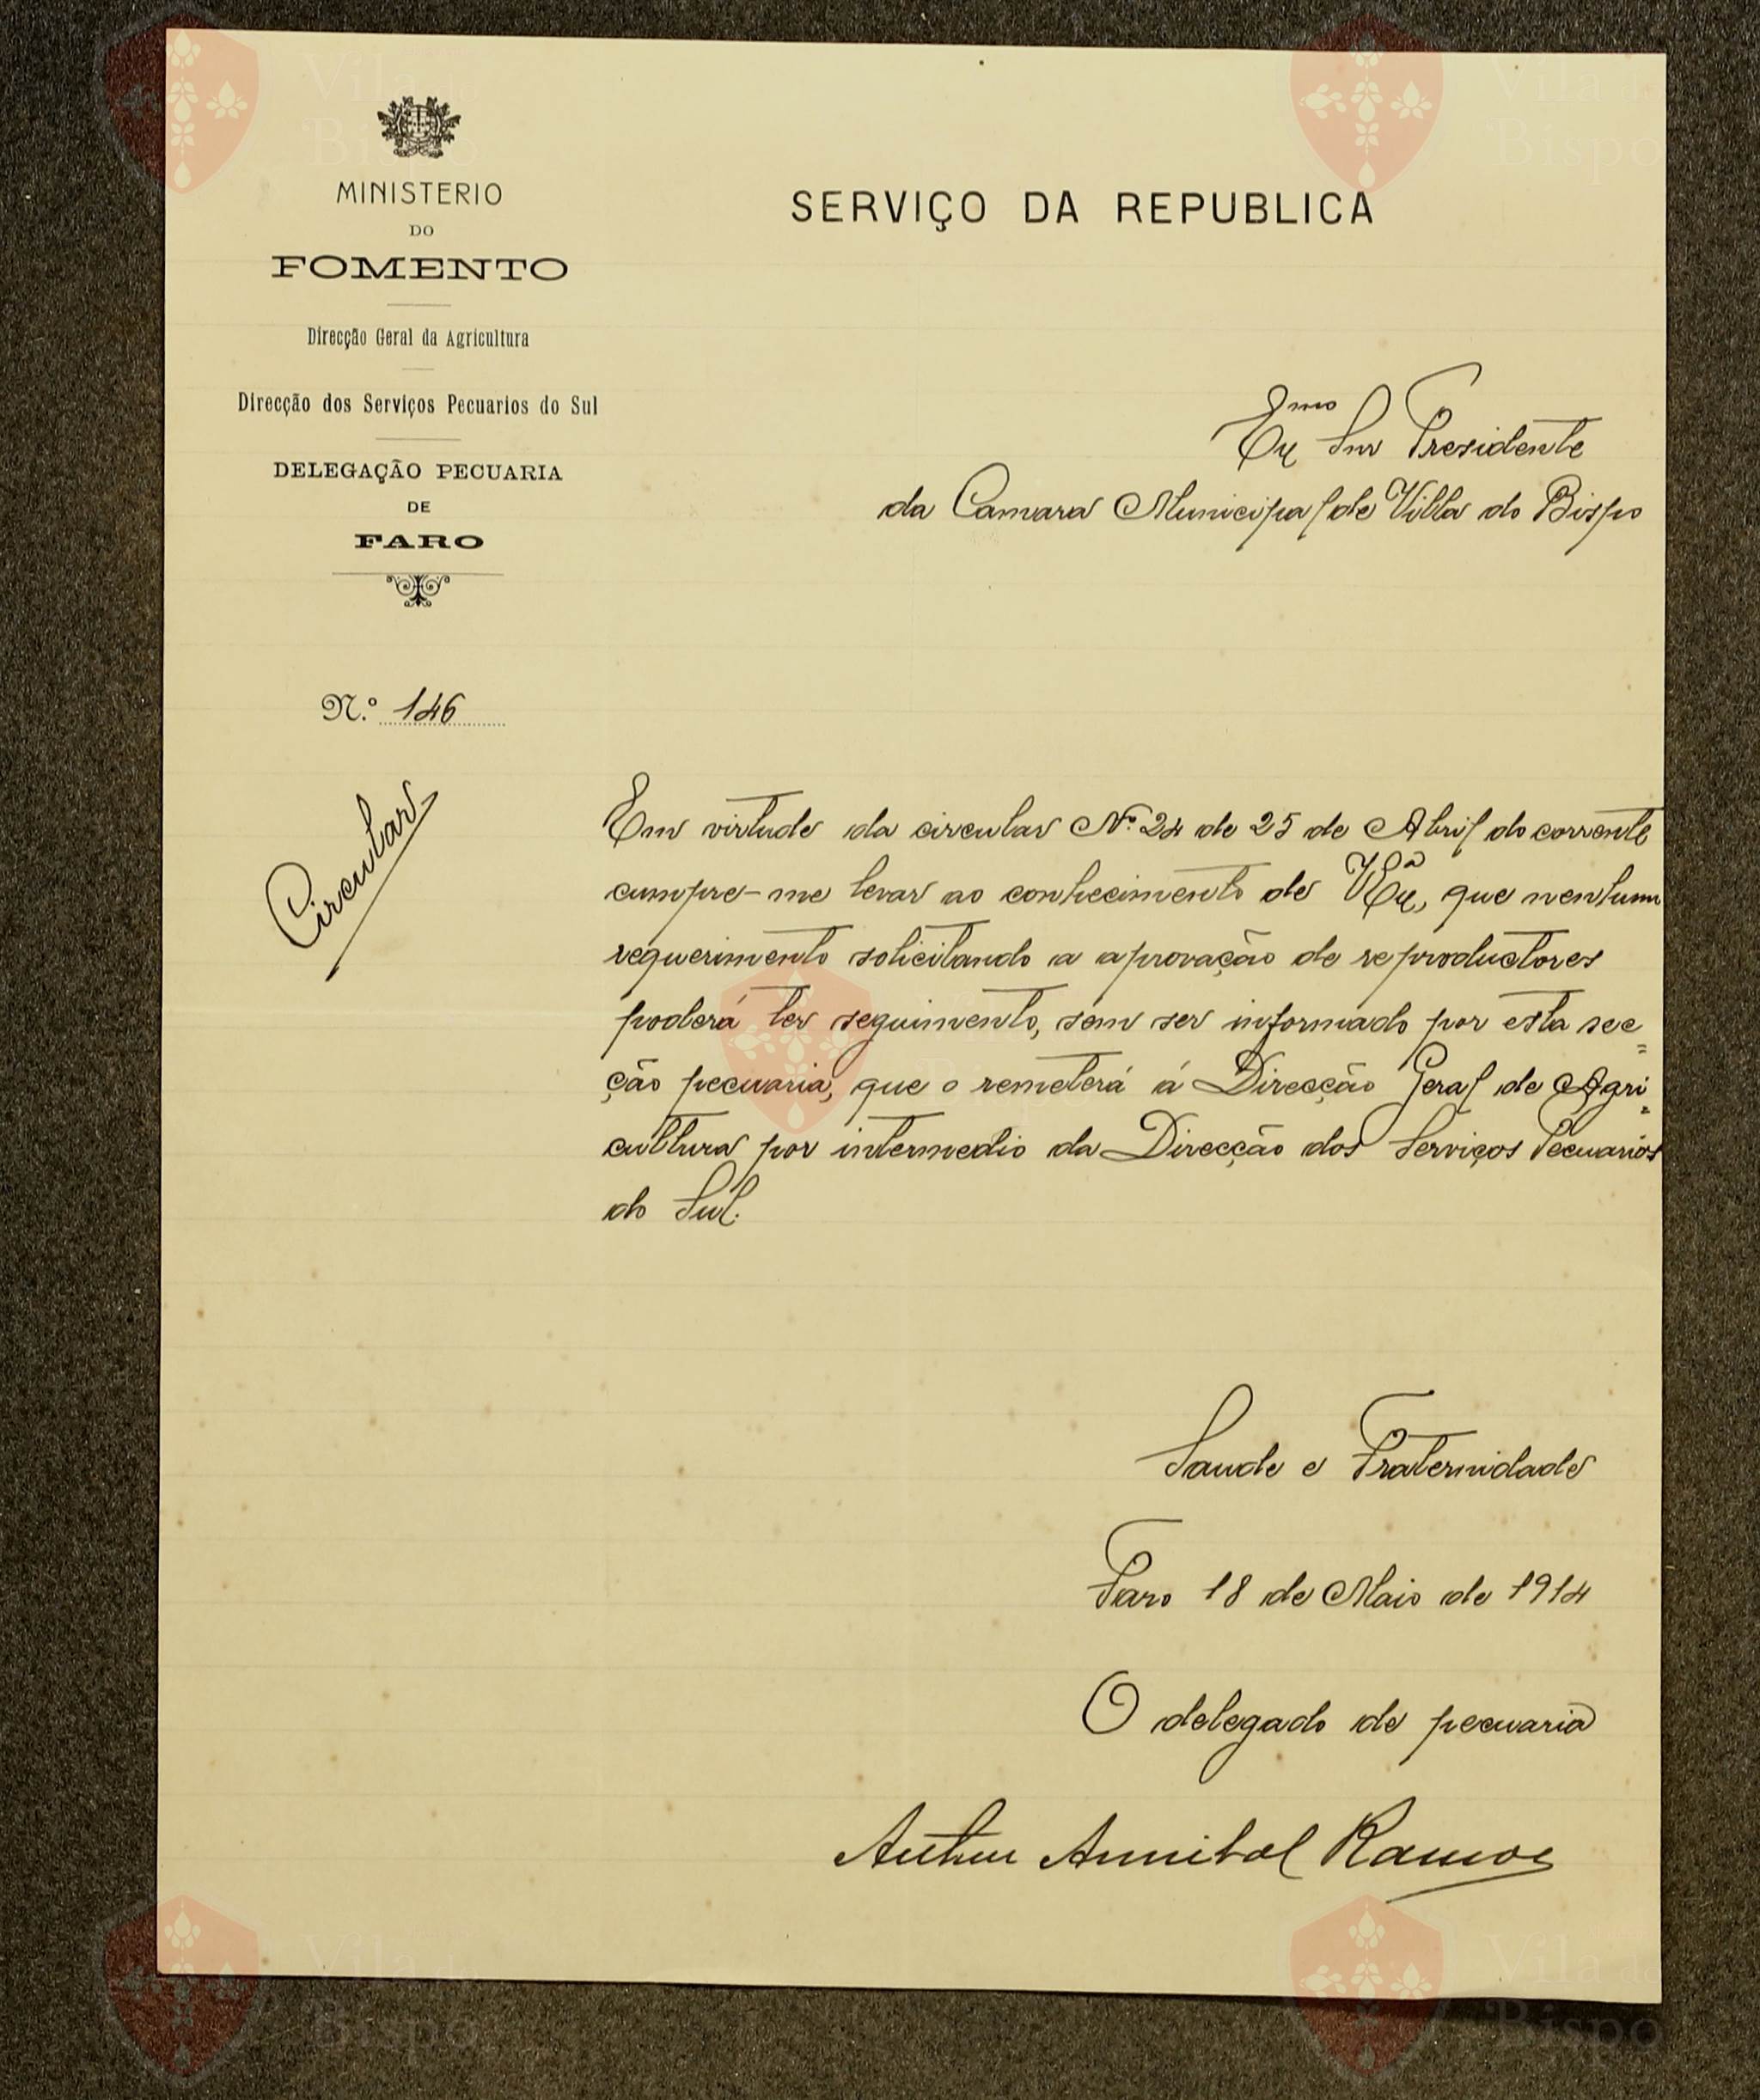 MINISTERIO
DO
FOMENTO
Direcção Geral da Agricultura
Direcção dos Serviços Pecuarios do Sul
DELEGAÇÃO PECUARIA
DE
FARO
SERVIÇO DA REPUBLICA
Exmo Snr Presidente
da Camara Municipal de Villa do Bispo
N.º 146
Circular
Em virtude da circular Nº 24 de 25 de Abril do corrente
cumpre-me levar ao conhecimento de V Exª, que nenhum
requerimento solicitando a aprovação de reproductores
poderá ter seguimento, sem ser informado por esta sec=
ção pecuaria, que o remeterá á Direcção Geral de Agri=
cultura por intermedio da Direcção dos Serviços Pecuarios
do Sul.
Saude e Fraternidade
Faro 18 de Maio de 1914
O delegado de pecuaria
Arthur Annibal Ramos
Vila do Bispo
Vila do Bispo
Vila do Bispo
Vila do Bispo
Vila do Bispo